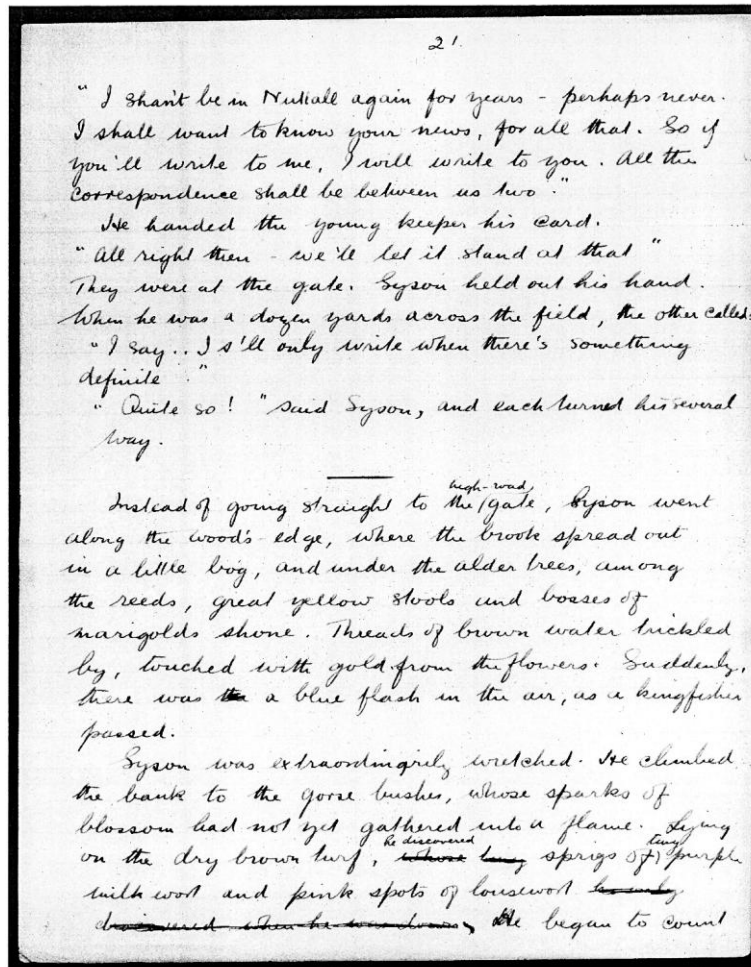 21
"I shan't be in Nuttall again for years - perhaps never.
I shall want to know your news, for all that. So if
you'll write to me, I will write to you. All the
correspondence shall be between us two."
He handed the young keeper his card.
"All right then - we'll let it stand at that"
They were at the gate. Syson held out his hand.
When he was a dozen yards across the field, the other called:
"I say.. I s'll only write when there's something
definite."
"Quite so!" said Syson, and each turned his several
way.
high-road
Instead of going straight to the gate, Syson went
along the wood's-edge, where the brook spread out
in a little bog, and under the alder trees, among
the reeds, great yellow stools and bosses of
marigolds shone. Threads of brown water trickled
by, touched with gold from the flowers. Suddenly,
there was a blue flash in the air, as a kingfisher
passed.
Syson was extraordinarily wretched. He climbed
the bank to the gorse bushes, whose sparks of
blossom had not yet gathered into a flame. Lying
he discovered tiny
on the dry brown turf, whose sprigs of purple
milkwort and pink spots of lousewort
discovered when he was down, He began to count